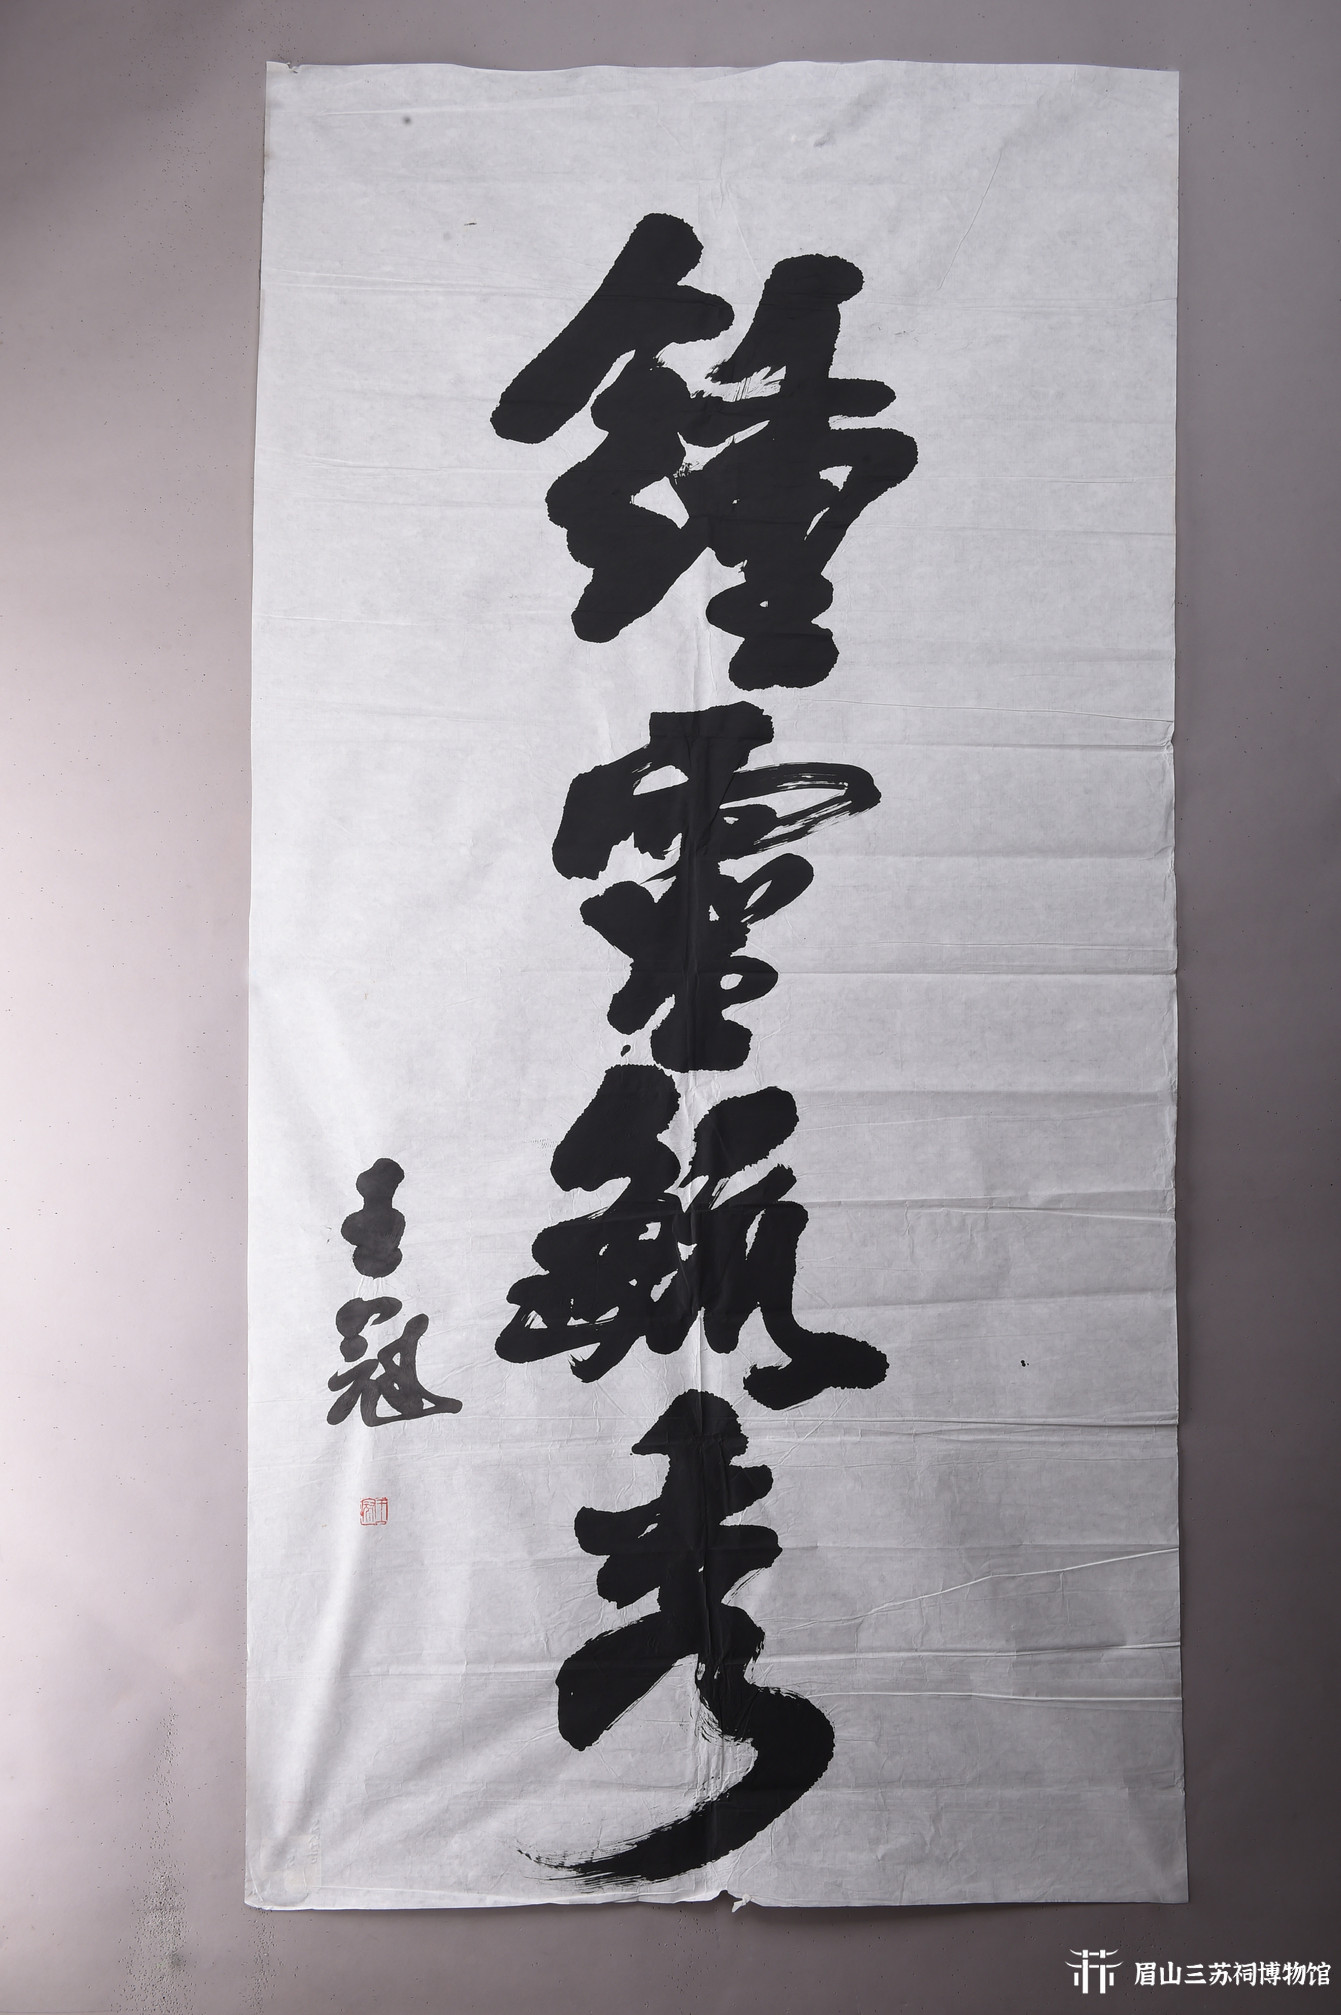 鍾靈毓秀
王冠
眉山三苏祠博物馆